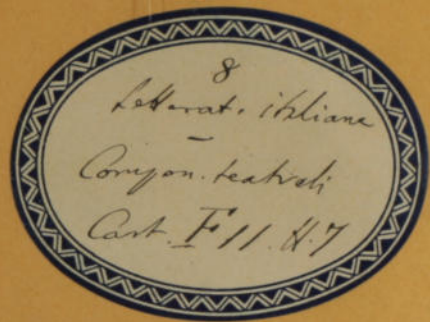 8
Letterat. italiana
—
Compon. teatrali
Cart. F 11. N. 7